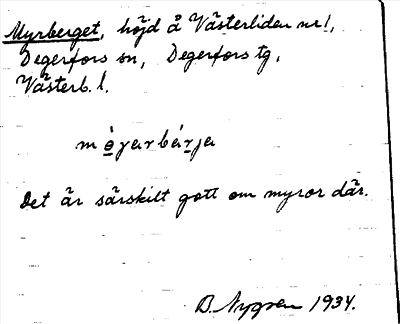 Myrberget, höjd å Västerliden nr 1,
Degerfors sn, Degerfors tg,
Västerb. l.
Det är särskilt gott om myror där.
B. Nygren 1934.